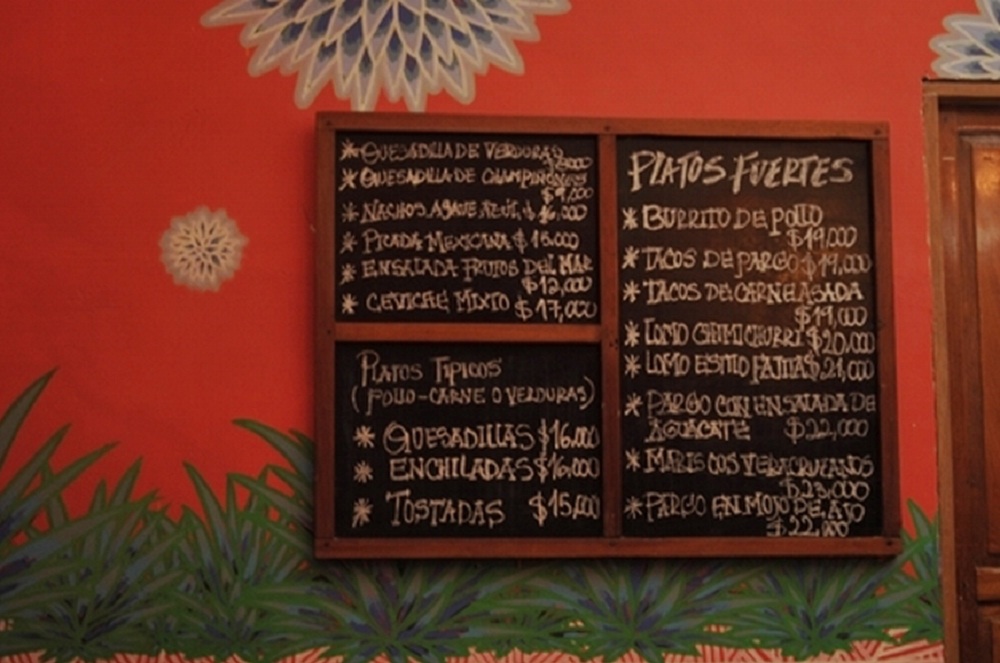 * QUESADILLA DE VERDURAS
* QUESADILLA DE CHAMPIÑONES
$9,000
* NACHOS AGAVE AZUL $16,000
* PICADA MEXICANA $15.000
* ENSALADA FRUTOS DEL MAR
$12,000
* CEVICHE MIXTO $17,000
PLATOS TIPICOS
(POLLO-CARNE O VERDURAS)
* QUESADILLAS $16,000
* ENCHILADAS $16,000
* TOSTADAS $15,000
PLATOS FUERTES
* BURRITO DE POLLO
$19,000
* TACOS DE PARGO $19,000
* TACOS DE CARNE ASADA
$19,000
* LOMO CHIMICHURRI $20,000
* LOMO ESTILO FAJITAS $21,000
* PARGO CON ENSALADA DE
AGUACATE $22,000
* MARISCOS VERACRUZANOS
$23,000
* PARGO EN MOJO DE AJO
$22,000